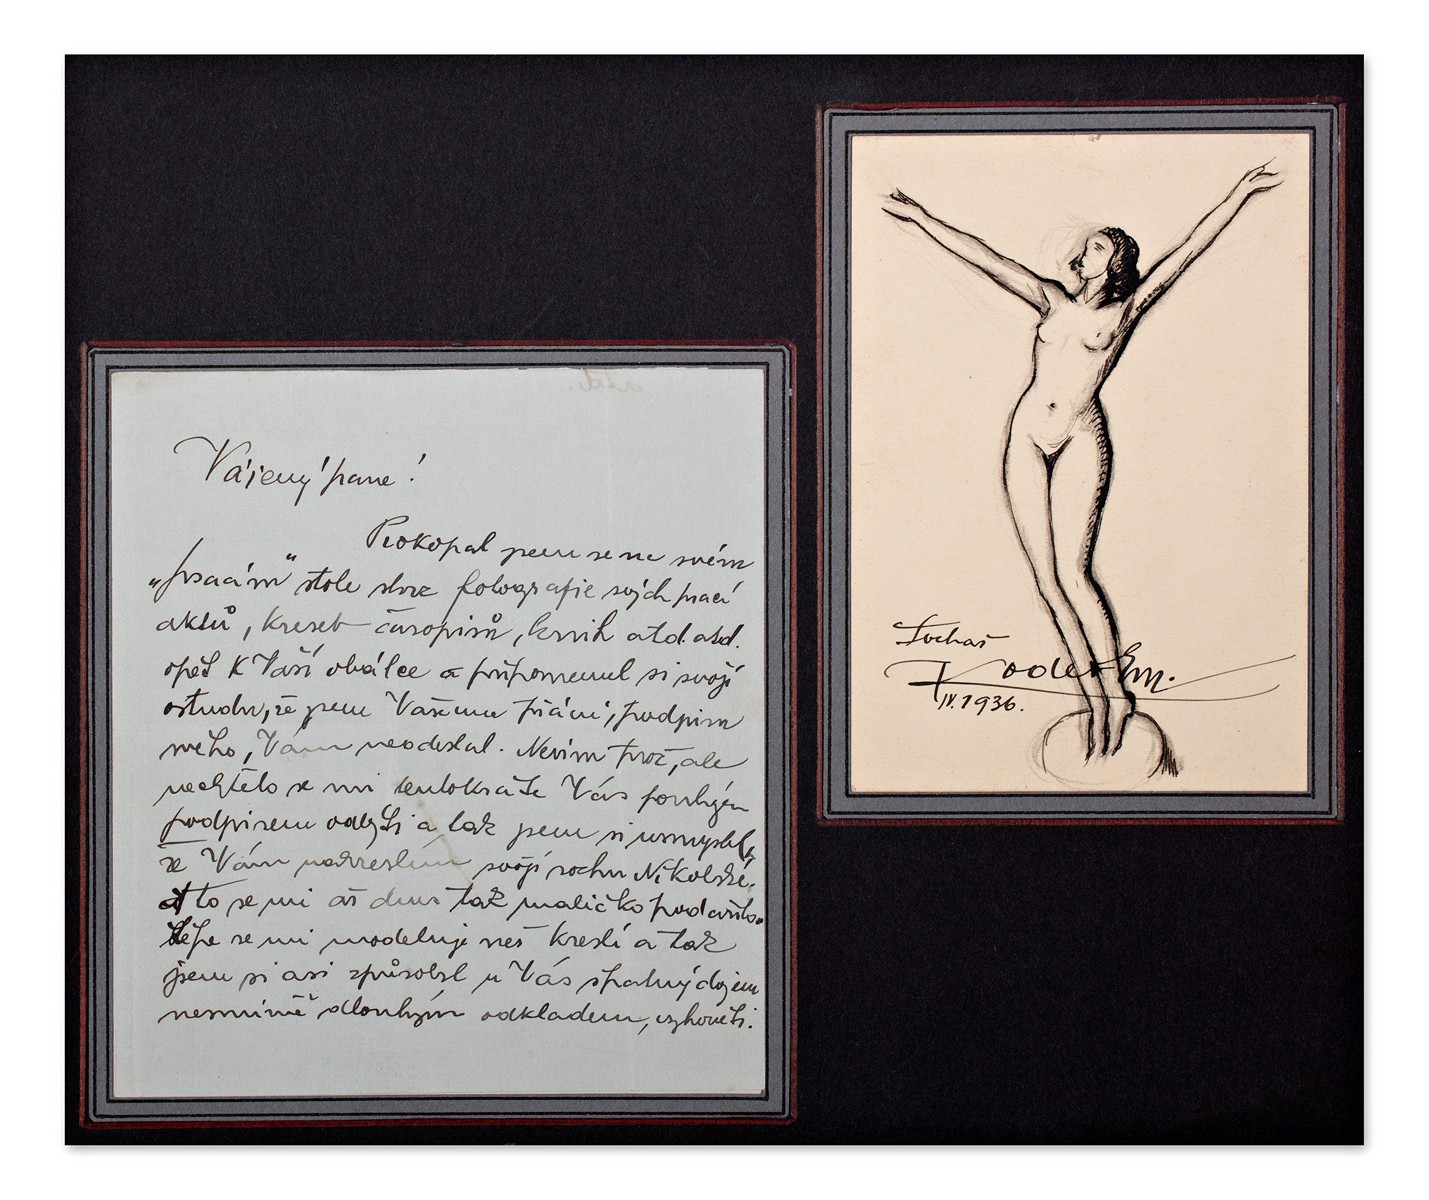 Vážený pane!
Prokopal jsem se na svém
„psacím" stole skrz fotografie svých prací
aktů, kreseb časopisů, knih atd. atd.
opět k Vaší obálce a připomenul si svojí
ostudu, že jsem Vašemu přání, podpisu
mého, Vám neodeslal. Nevím proč, ale
nechtělo se mi tentokráte Vás pouhým
podpisem odbýti a tak jsem si usmyslil,
že Vám nakreslím svojí sochu Nikolské.
A to se mi až dnes tak maličko podařilo.
Lépe se mi modeluje než kreslí a tak
jsem si asi způsobil u Vás špatný dojem
nesmírně dlouhým odkladem, vyhověti.
Sochař
Kodet Em.
IV. 1936.